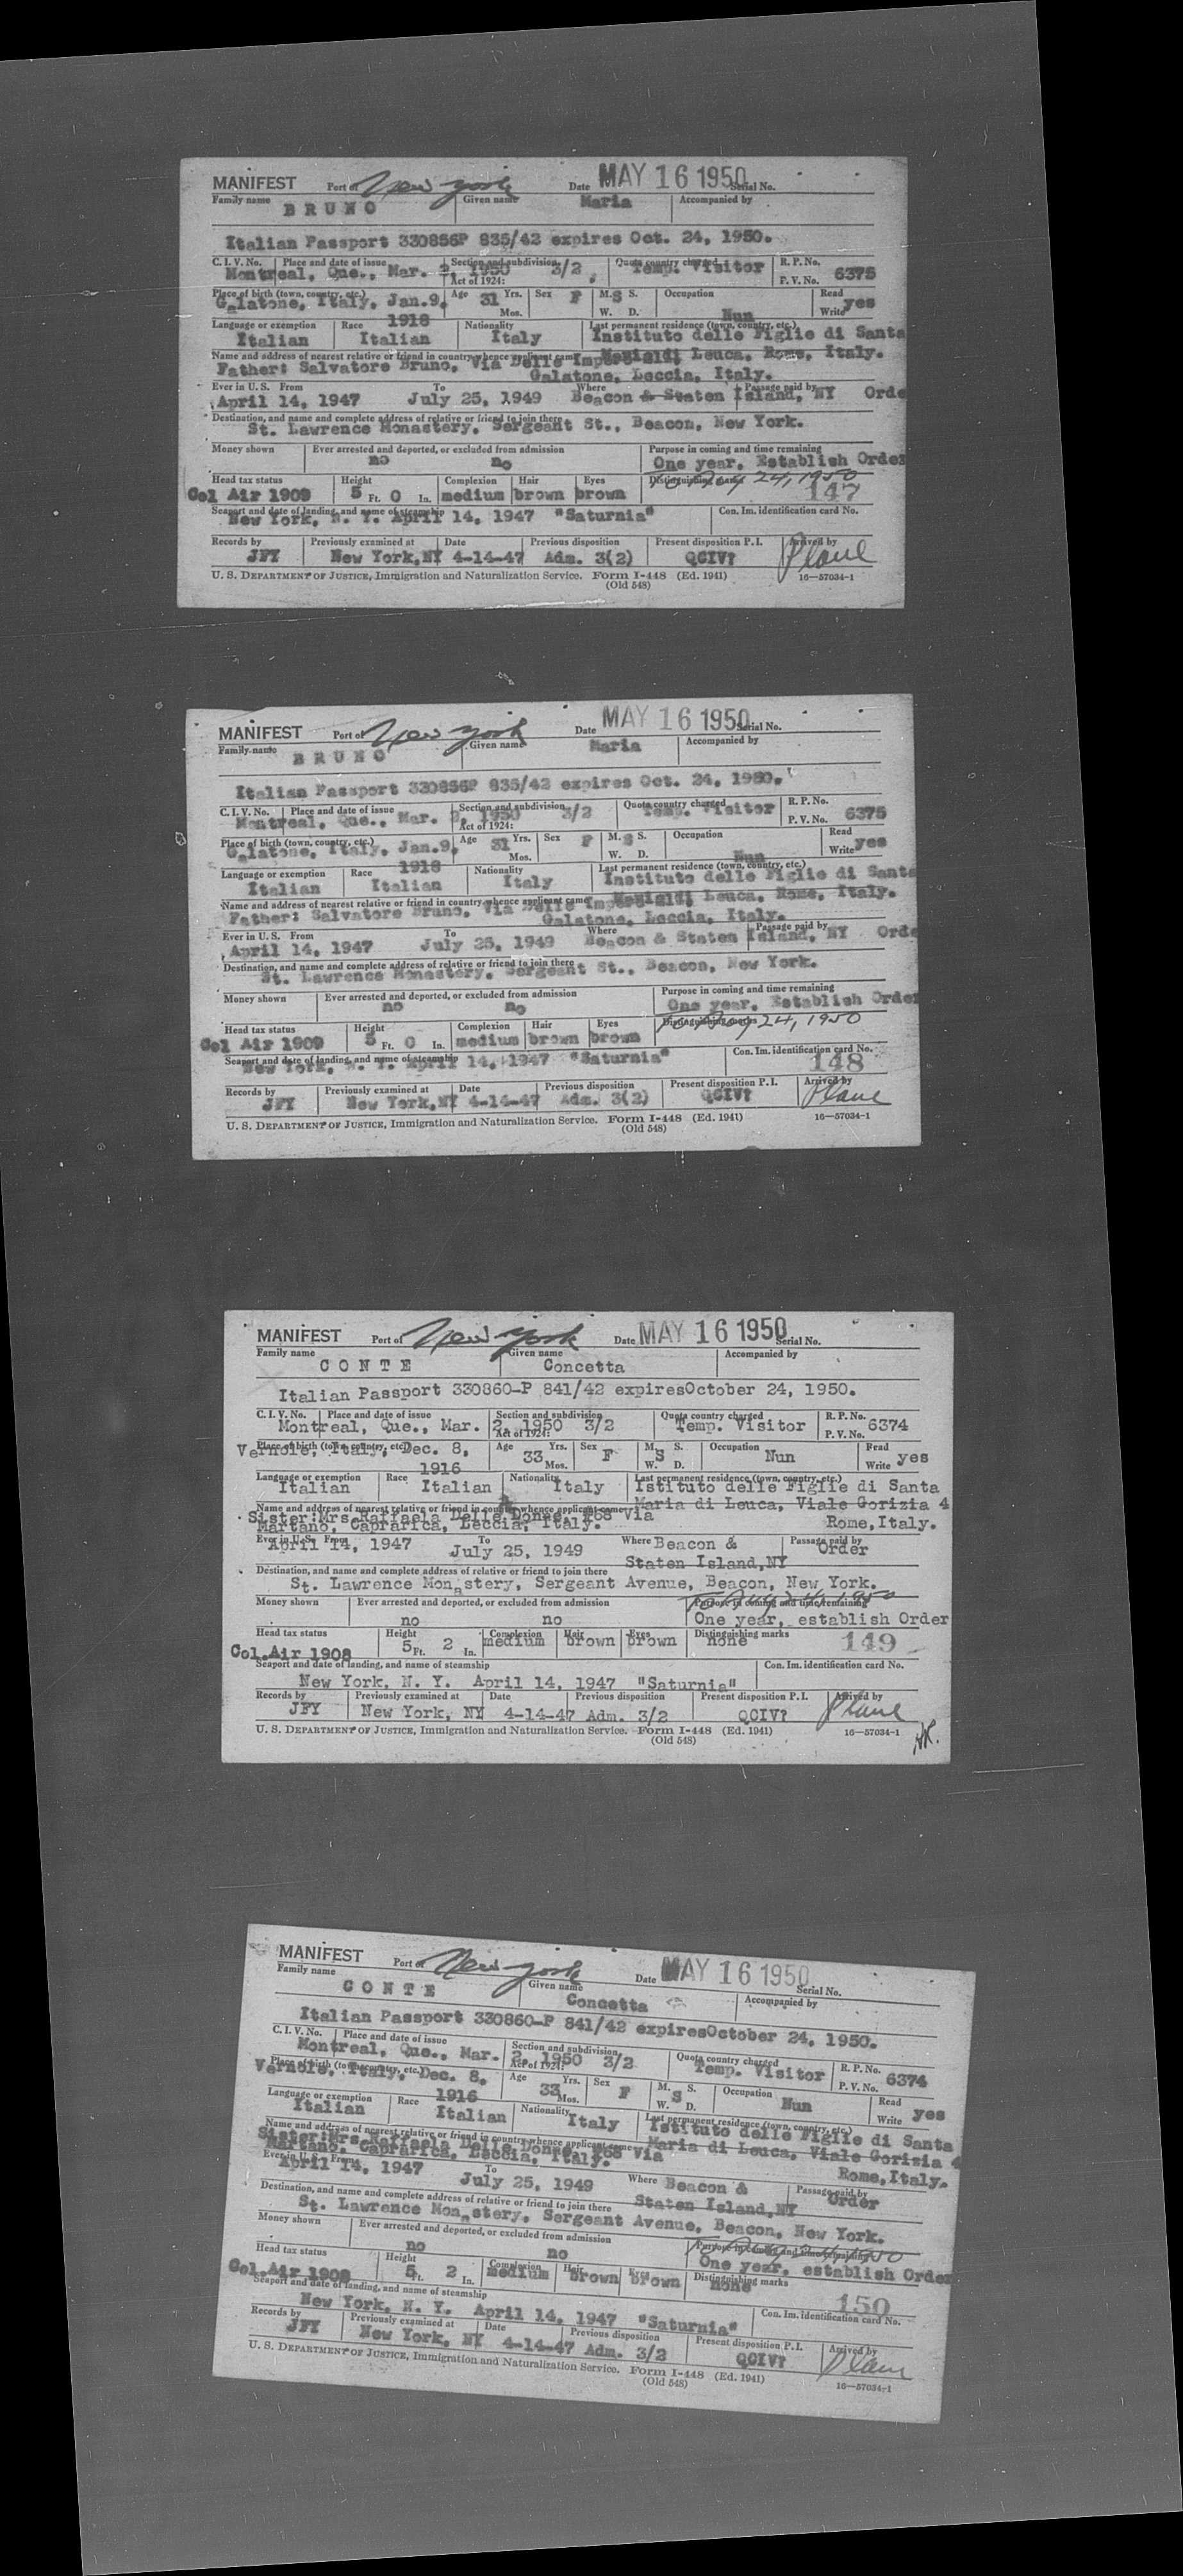 MANIFEST Port of New York Date MAY 16 1950 Serial No.
Family name BRUNO Given name Maria Accompanied by
Italian Passport 330856P 835/42 expires Oct. 24, 1950.
C. I. V. No. Place and date of issue Section and subdivision Quota country charged R. P. No.
Montreal, Que., Mar. 1950 3/2 Temp. Visitor 6375
Act of 1924: P. V. No.
Place of birth (town, country, etc.) Age 31 Yrs. Sex F M. S S. Occupation Read
Galatone, Italy, Jan.9, Mos. W. D. Nun Write yes
1918
Language or exemption Race Nationality Last permanent residence (town, country, etc.)
Italian Italian Italy Instituto delle Figlie di Santa
Name and address of nearest relative or friend in country whence applicant came Leuca, Rome, Italy.
Father: Salvatore Bruno, Via Delle
Galatone, Leccia, Italy.
Ever in U. S. From To Where Passage paid by
April 14, 1947 July 25, 1949 Beacon & Staten Island, NY Orde
Destination, and name and complete address of relative or friend to join there
St. Lawrence Monastery, Sergeant St., Beacon, New York.
Money shown Ever arrested and deported, or excluded from admission Purpose in coming and time remaining
no no One year, Establish Order
Head tax status Height Complexion Hair Eyes Distinguishing marks 24, 1950
Col Air 1909 5 Ft. 0 In. medium brown brown 147
Seaport and date of landing, and name of steamship Con. Im. identification card No.
New York, N. Y. April 14, 1947 "Saturnia"
Records by Previously examined at Date Previous disposition Present disposition P. I. Arrived by
JFY New York,NY 4-14-47 Adm. 3(2) QCIV? Plane
U. S. DEPARTMENT OF JUSTICE, Immigration and Naturalization Service. Form I-448 (Ed. 1941) 16—57034-1
(Old 548)
MANIFEST Port of New York Date MAY 16 1950 Serial No.
Family name BRUNO Given name Maria Accompanied by
Italian Passport 330856P 835/42 expires Oct. 24, 1950.
C. I. V. No. Place and date of issue Section and subdivision Quota country charged R. P. No.
Montreal, Que., Mar. 1950 3/2 Temp. Visitor 6375
Act of 1924: P. V. No.
Place of birth (town, country, etc.) Age 31 Yrs. Sex F M. S S. Occupation Read
Galatone, Italy, Jan.9, Mos. W. D. Nun Write yes
1918
Language or exemption Race Nationality Last permanent residence (town, country, etc.)
Italian Italian Italy Instituto delle Figlie di Santa
Name and address of nearest relative or friend in country whence applicant came Leuca, Rome, Italy.
Father: Salvatore Bruno, Via Delle
Galatone, Leccia, Italy.
Ever in U. S. From To Where Passage paid by
April 14, 1947 July 25, 1949 Beacon & Staten Island, NY Orde
Destination, and name and complete address of relative or friend to join there
St. Lawrence Monastery, Sergeant St., Beacon, New York.
Money shown Ever arrested and deported, or excluded from admission Purpose in coming and time remaining
no no One year, Establish Order
Head tax status Height Complexion Hair Eyes Distinguishing marks 24, 1950
Col Air 1909 5 Ft. 0 In. medium brown brown
Seaport and date of landing, and name of steamship Con. Im. identification card No.
New York, N. Y. April 14, 1947 "Saturnia" 148
Records by Previously examined at Date Previous disposition Present disposition P. I. Arrived by
JFY New York,NY 4-14-47 Adm. 3(2) QCIV? Plane
U. S. DEPARTMENT OF JUSTICE, Immigration and Naturalization Service. Form I-448 (Ed. 1941) 16—57034-1
(Old 548)
MANIFEST Port of New York Date MAY 16 1950 Serial No.
Family name CONTE Given name Concetta Accompanied by
Italian Passport 330860-P 841/42 expiresOctober 24, 1950.
C. I. V. No. Place and date of issue Section and subdivision Quota country charged R. P. No.
Montreal, Que., Mar. 2, 1950 3/2 Temp. Visitor 6374
Act of 1924: P. V. No.
Place of birth (town, country, etc.) Age 33 Yrs. Sex F M. S S. Occupation Read
Vernole, Italy, Dec. 8, Mos. W. D. Nun Write yes
1916
Language or exemption Race Nationality Last permanent residence (town, country, etc.)
Italian Italian Italy Istituto delle Figlie di Santa
Name and address of nearest relative or friend in country whence applicant came Maria di Leuca, Viale Gorizia 4
Sister:Mrs Raffaela Delle Donne, #68 Via Rome,Italy.
Martano, Caprarica, Leccia, Italy.
Ever in U. S. From To Where Beacon & Passage paid by
April 14, 1947 July 25, 1949 Staten Island,NY Order
Destination, and name and complete address of relative or friend to join there
St. Lawrence Monastery, Sergeant Avenue, Beacon, New York.
Money shown Ever arrested and deported, or excluded from admission Purpose in coming and time remaining 1950
no no One year, establish Order
Head tax status Height Complexion Hair Eyes Distinguishing marks
Col.Air 1908 5 Ft. 2 In. medium brown brown none 149
Seaport and date of landing, and name of steamship Con. Im. identification card No.
New York, N. Y. April 14, 1947 "Saturnia"
Records by Previously examined at Date Previous disposition Present disposition P. I. Arrived by
JFY New York, NY 4-14-47 Adm. 3/2 QCIV? Plane
U. S. DEPARTMENT OF JUSTICE, Immigration and Naturalization Service. Form I-448 (Ed. 1941) 16—57034-1
(Old 548)
MANIFEST Port of New York Date MAY 16 1950 Serial No.
Family name CONTE Given name Concetta Accompanied by
Italian Passport 330860-P 841/42 expiresOctober 24, 1950.
C. I. V. No. Place and date of issue Section and subdivision Quota country charged R. P. No.
Montreal, Que., Mar. 2, 1950 3/2 Temp. Visitor 6374
Act of 1924: P. V. No.
Place of birth (town, country, etc.) Age 33 Yrs. Sex F M. S S. Occupation Read
Vernole, Italy, Dec. 8, Mos. W. D. Nun Write yes
1916
Language or exemption Race Nationality Last permanent residence (town, country, etc.)
Italian Italian Italy Istituto delle Figlie di Santa
Name and address of nearest relative or friend in country whence applicant came Maria di Leuca, Viale Gorizia 4
Sister:Mrs Raffaela Delle Donne, #68 Via Rome,Italy.
Martano, Caprarica, Leccia, Italy.
Ever in U. S. From To Where Beacon & Passage paid by
April 14, 1947 July 25, 1949 Staten Island,NY Order
Destination, and name and complete address of relative or friend to join there
St. Lawrence Monastery, Sergeant Avenue, Beacon, New York.
Money shown Ever arrested and deported, or excluded from admission Purpose in coming and time remaining 1950
no no One year, establish Order
Head tax status Height Complexion Hair Eyes Distinguishing marks
Col.Air 1908 5 Ft. 2 In. medium brown brown none 150
Seaport and date of landing, and name of steamship Con. Im. identification card No.
New York, N. Y. April 14, 1947 "Saturnia"
Records by Previously examined at Date Previous disposition Present disposition P. I. Arrived by
JFY New York, NY 4-14-47 Adm. 3/2 QCIV? Plane
U. S. DEPARTMENT OF JUSTICE, Immigration and Naturalization Service. Form I-448 (Ed. 1941) 16—57034-1
(Old 548)